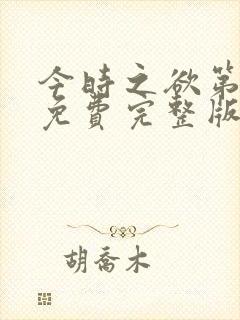 今时之欲第
免費完整版
胡喬木